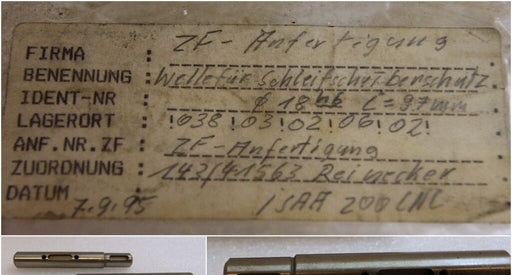 FIRMA : ZF-Anfertigung
BENENNUNG : Welle für Schleifscheibenschutz
IDENT-NR : ø 18 h6 L=97mm
LAGERORT : !038!03!02!06!02!
ANF.NR.ZF : ZF-Anfertigung
ZUORDNUNG : 143/41563 Reinecker
DATUM 7.9.95 ISAA 200 CNC